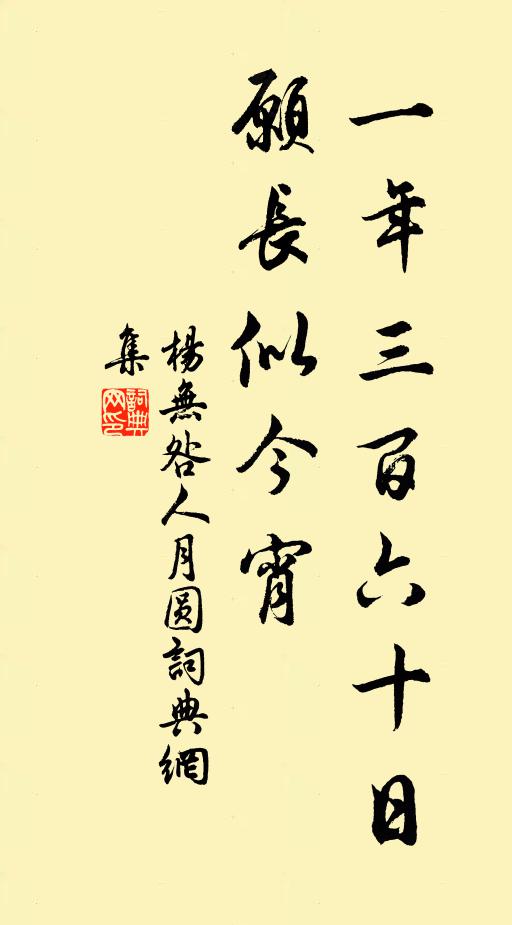 一年三百六十日
願長似今宵
楊無咎人月圓詞典網
集
詞典
网印